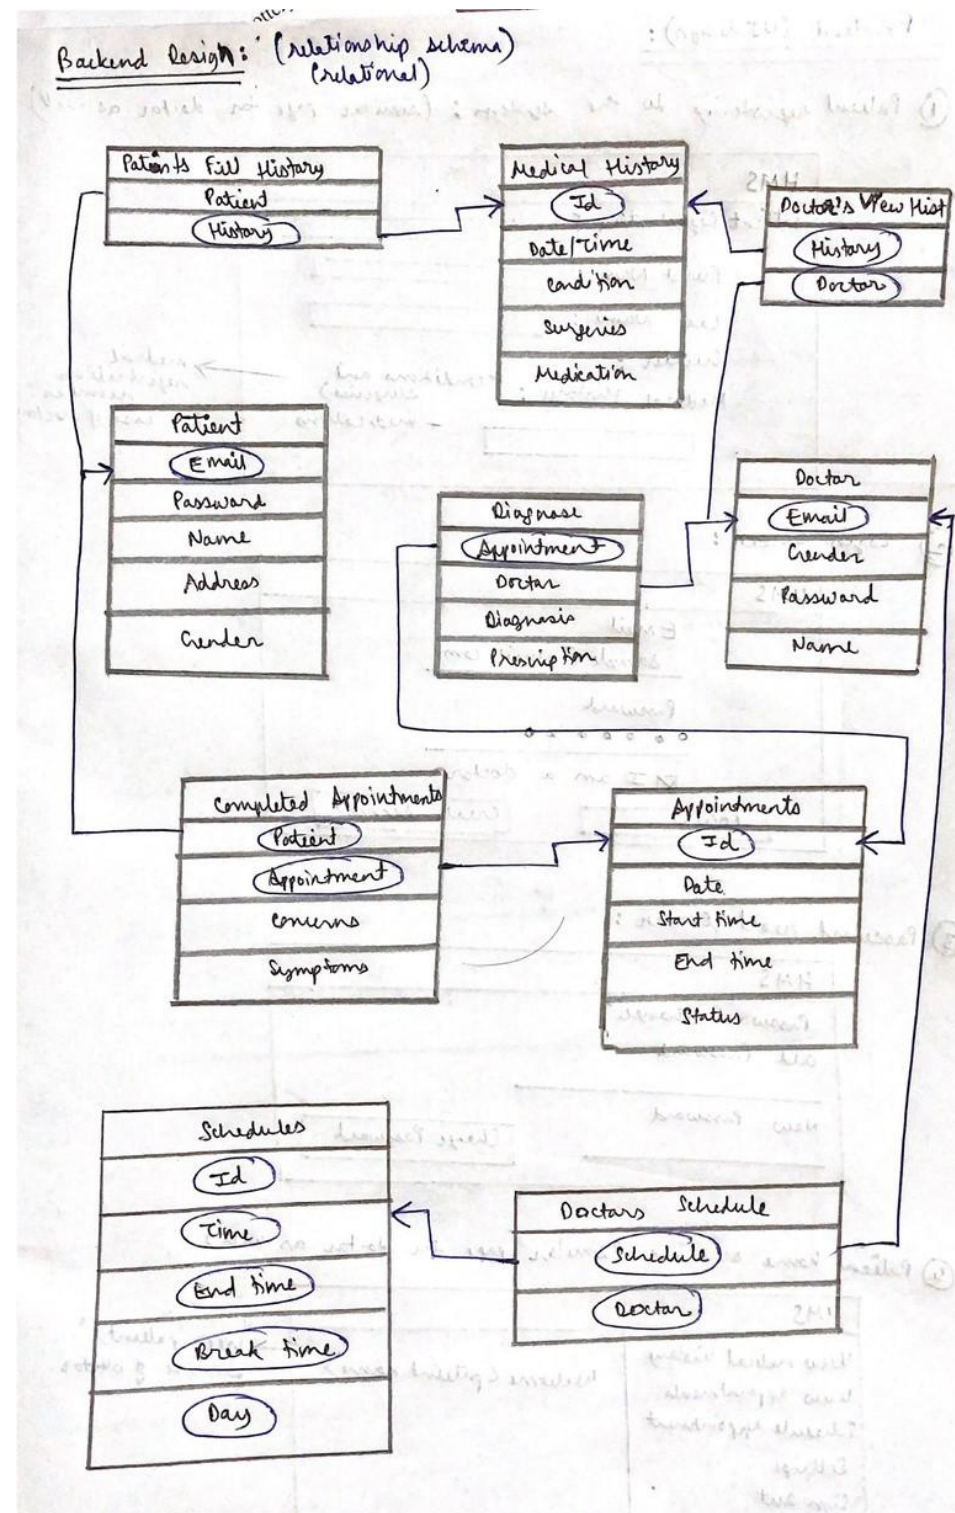 Backend Design: (relationship schema)
(relational)
Patients Fill History
Patient
History
Medical History
Id
Date/Time
Condition
Surgeries
Medication
Doctor's View Hist
History
Doctor
Patient
Email
Password
Name
Address
Gender
Diagnose
Appointment
Doctor
Diagnosis
Prescription
Doctor
Email
Gender
Password
Name
Completed Appointments
Patient
Appointment
Concerns
Symptoms
Appointments
Id
Date
Start time
End time
Status
Schedules
Id
Time
End time
Break time
Day
Doctors Schedule
Schedule
Doctor